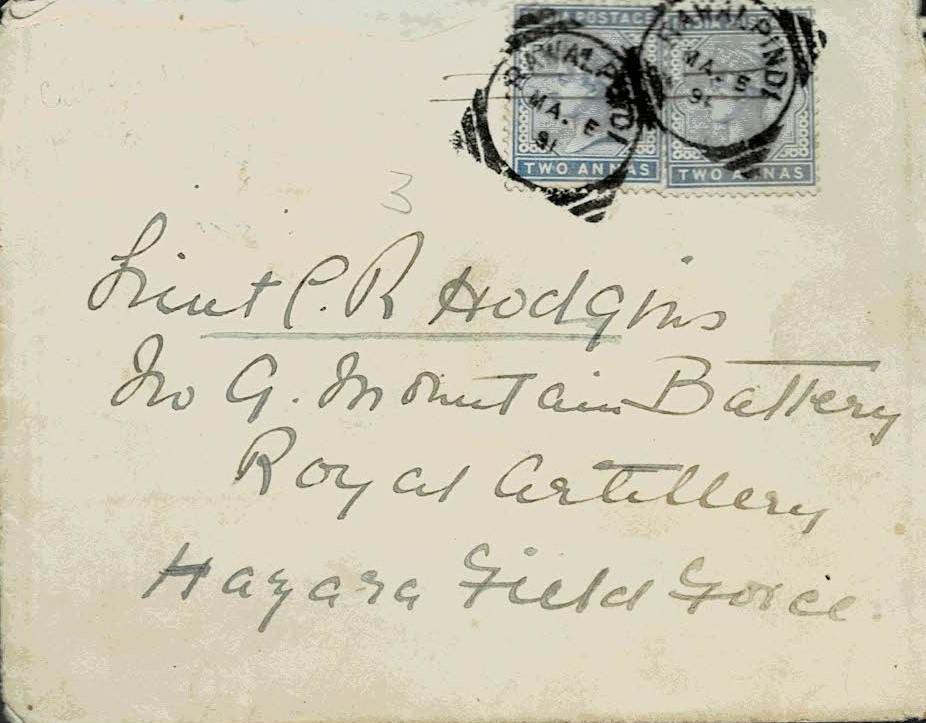 POSTAGE
RAWALPINDI
MA. E
91
RAWALPINDI
MA. 5
91
TWO ANNAS
TWO ANNAS
3
Lieut C. R Hodgins
No 9. Mountain Battery
Royal Artillery
Hazara Field Force.